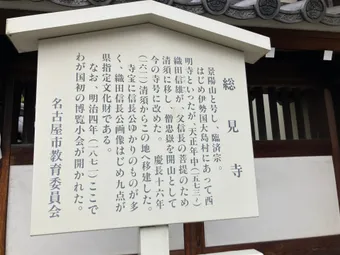 総見寺
景陽山と号し、臨済宗。
はじめ伊勢国大島村にあって西
明寺といったが、天正年中(一五七三〜)
織田信雄が、父信長の菩提のため
清須に移し、僧忠嶽を開山として
今の寺号に改めた。慶長十六年
(一六一一)清須からこの地へ移建した。
寺宝に信長公ゆかりのものが多
く、織田信長公画像はじめ九点が
県指定文化財である。
なお、明治四年(一八七一)ここで
わが国初の博覧小会が開かれた。
名古屋市教育委員会